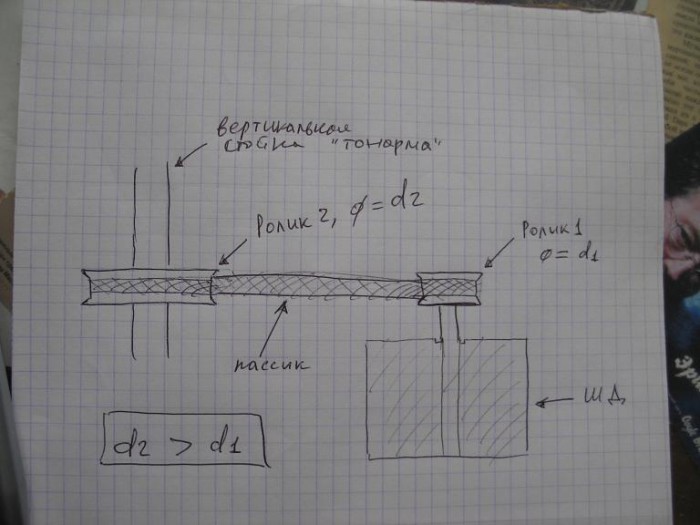 вертикальная
стойка "тонарма"
Ролик 2, φ = d2
Ролик 1
φ = d1
пассик
ШД
d2 > d1